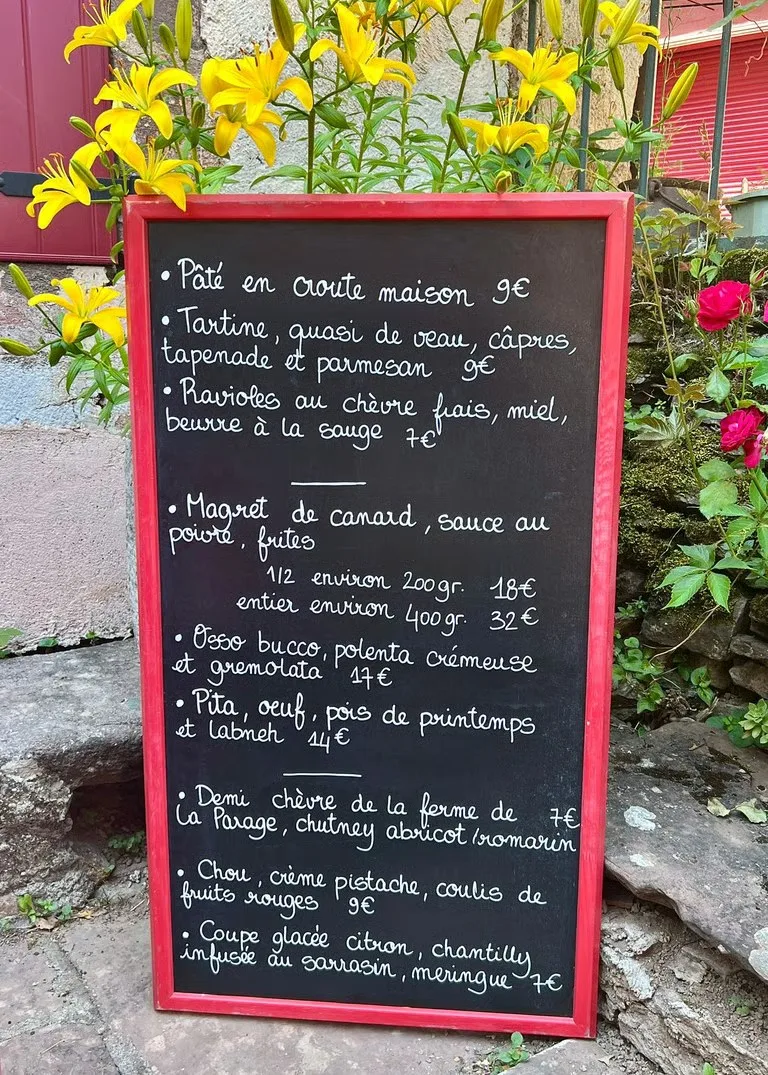 • Pâté en croute maison 9€
• Tartine, quasi de veau, câpres,
tapenade et parmesan 9€
• Ravioles au chèvre frais, miel,
beurre à la sauge 7€
• Magret de canard, sauce au
poivre, frites
1/2 environ 200gr. 18€
entier environ 400gr. 32€
• Osso bucco, polenta crémeuse
et gremolata 17€
• Pita, oeuf, pois de printemps
et labneh 14€
• Demi chèvre de la ferme de 7€
La Parage, chutney abricot/romarin
• Chou, crème pistache, coulis de
fruits rouges 9€
• Coupe glacée citron, chantilly
infusée au sarrasin, meringue 7€